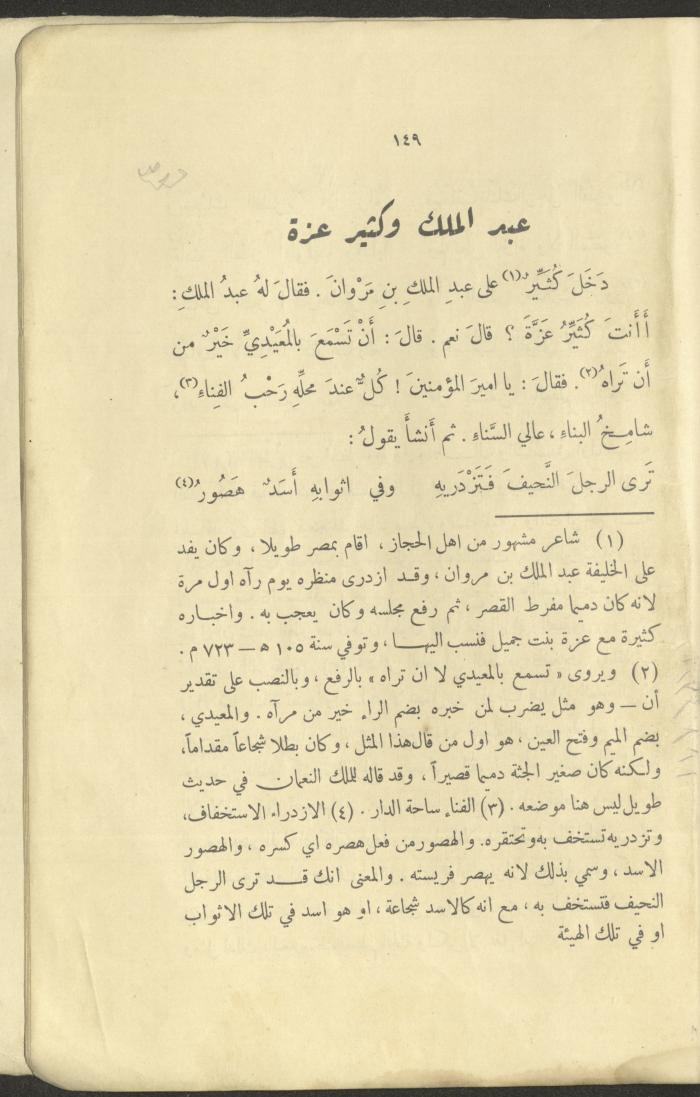 ١٤٩
عبد الملك وكثير عزة
دَخَلَ كُثَيِّرٌ(١) على عبدِ الملكِ بنِ مَرْوانَ . فقالَ لهُ عبدُ الملكِ :
أَأَنتَ كُثَيِّرُ عَزَّةَ ؟ قالَ نعم . قالَ : أَنْ تَسْمَعَ بالمُعَيْدِيِّ خَيْرٌ من
أَن تَراهُ(٢). فقالَ : يا اميرَ المؤمنينَ ! كُلٌّ عندَ محلِّهِ رَحْبُ الفِناءِ(٣)،
شامِخُ البناءِ ، عالي السَّناءِ . ثم أَنشأَ يقولُ :
تَرى الرجلَ النَّحيفَ فَتَزْدَريهِ وفي اثوابهِ أَسَدٌ هَصُورُ(٤)
(١) شاعر مشهور من اهل الحجاز ، اقام بمصر طويلا ، وكان يفد
على الخليفة عبد الملك بن مروان ، وقد ازدرى منظره يوم رآه اول مرة
لانه كان دميما مفرط القصر ، ثم رفع مجلسه وكان يعجب به . واخباره
كثيرة مع عزة بنت جميل فنسب اليها ، وتوفي سنة ١٠٥ ه — ٧٢٣ م .
(٢) ويروى « تسمع بالمعيدي لا ان تراه » بالرفع ، وبالنصب على تقدير
أن — وهو مثل يضرب لمن خبره بضم الراء خير من مرآه . والمعيدي ،
بضم الميم وفتح العين ، هو اول من قال هذا المثل ، وكان بطلا شجاعاً مقداماً،
ولكنه كان صغير الجثة دميما قصيراً ، وقد قاله للملك النعمان في حديث
طويل ليس هنا موضعه . (٣) الفناء ساحة الدار . (٤) الازدراء الاستخفاف،
وتزدريه تستخف به وتحتقره. والهصور من فعل هصره اي كسره ، والهصور
الاسد ، وسمي بذلك لانه يهصر فريسته . والمعنى انك قد ترى الرجل
النحيف فتستخف به ، مع انه كالاسد شجاعة ، او هو اسد في تلك الاثواب
او في تلك الهيئة